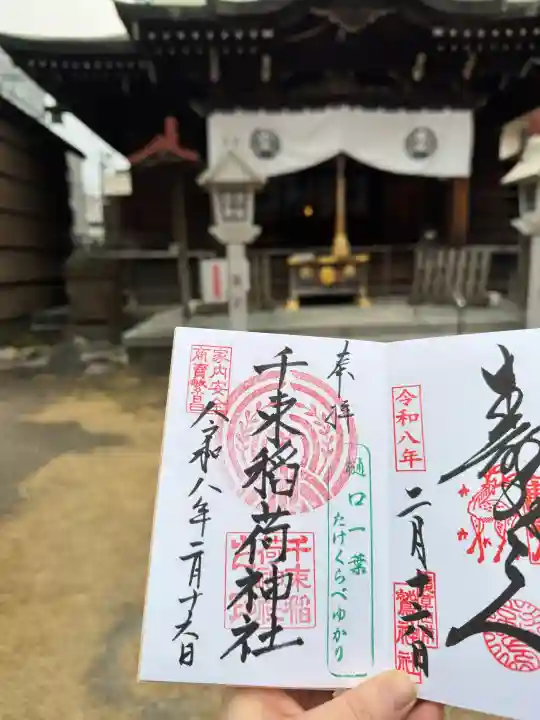 寿老人
令和八年
二月十六日
奉拝
樋口一葉
たけくらべゆかり
千束稲荷神社
家内安全
商売繁昌
令和八年二月十六日